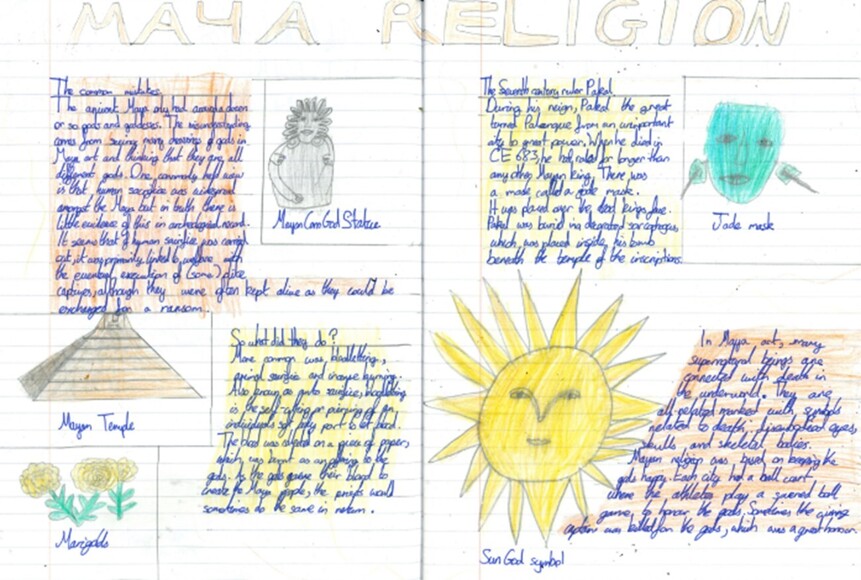 MAYA RELIGION
The common mistakes.
The ancient Maya only had around a dozen
or so gods and goddesses. The misunderstanding
comes from seeing many drawings of gods in
Maya art and thinking that they are all
different gods. One commonly held view
is that human sacrifice was widespread
amongst the Maya but in truth there is
little evidence of this in archeological record.
It seems that if human sacrifice was carried
out, it was primarily linked to warfare with
the eventual execution of (some) elite
captives, although they were often kept alive as they could be
exchanged for a ransom.
Mayan Corn God Statue
Mayan Temple
Marigolds
So what did they do?
More common was, bloodletting,
animal sacrifice and incense burning.
Also known as auto sacrifice, bloodletting
is the self-cutting or piercing of an
individuals soft body part to let blood.
The blood was collected on a piece of paper,
which was burnt as an offering to the
gods. As the gods gave their blood to
create the Maya people, the priests would
sometimes do the same in return.
The Seventh century ruler Pakal
During his reign, Pakal the great
turned Palenque from an unimportant
city to great power. When he died in
CE 683, he had ruled for longer than
any other Mayan king. There was
a mask called a jade mask.
It was placed over the dead kings face.
Pakal was buried in a decorated sarcophagus,
which was placed inside his tomb
beneath the temple of the inscriptions.
Jade mask
Sun God symbol
In Maya art, many
supernatural beings are
connected with death in
the underworld. They are
all related marked with symbols
related to death; disembodied eyes,
skulls and skeletal bodies.
Mayan religion was based on keeping the
gods happy. Each city had a ball court
where the athletes play a sacred ball
game, to honour the gods. Sometimes the winning
captain was killed for the gods, which was a great honour.